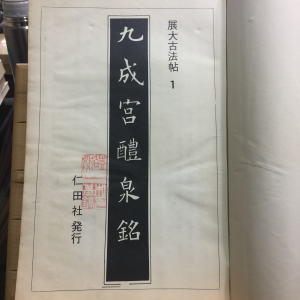 展大古法帖 1
九成宮醴泉銘
仁田社発行